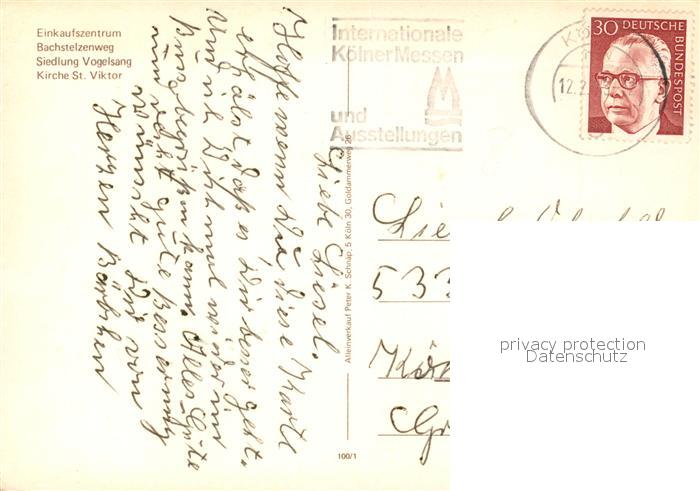 Einkaufszentrum
Bachstelzenweg
Siedlung Vogelsang
Kirche St. Viktor
Internationale
KölnerMessen
und
Ausstellungen
30 DEUTSCHE
BUNDESPOST
12.2.
Liebe Liesel.
Hoffe wenn Du diese Karte
erhälst daß es Dir besser geht.
Und ich Dich mal wieder in
begrüßen kann. Alles Gute
und recht gute Besserung
wünscht Dir von
Herzen Bärbchen
Alleinverkauf Peter K. Schnap, 5 Köln 30, Goldammerweg 26
100/1
533
privacy protection
Datenschutz